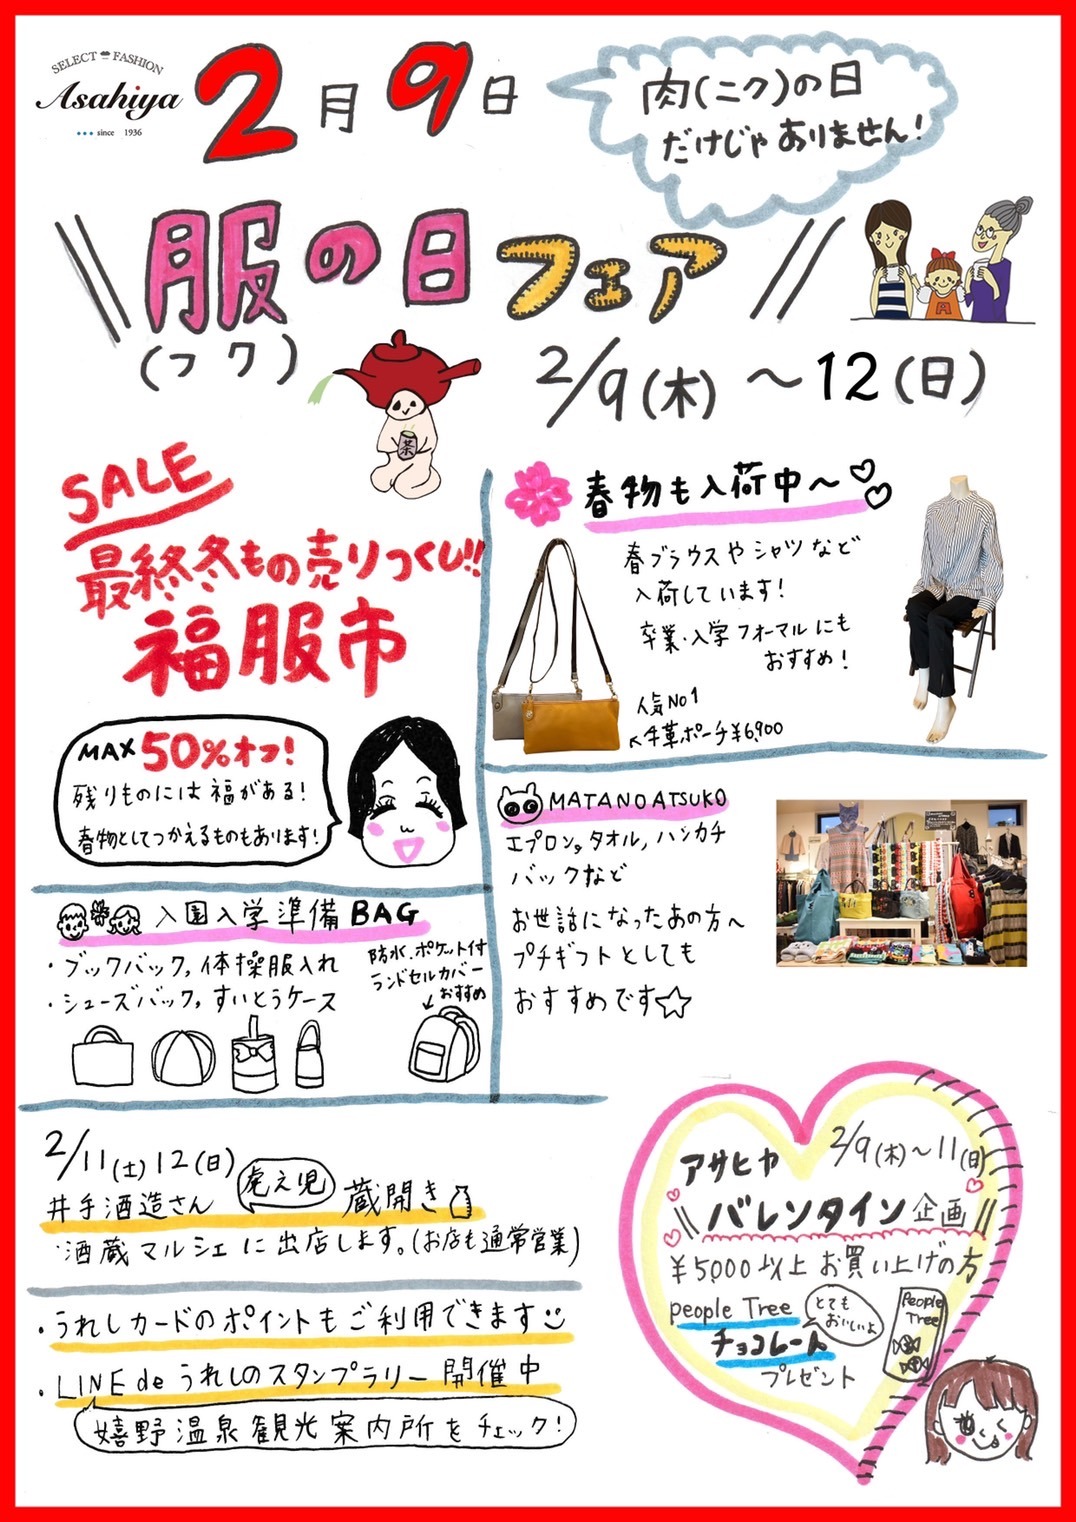 SELECT FASHION
Asahiya
since 1936
2月9日
肉(ニク)の日
だけじゃありません!
服の日フェア
(フク)
2/9(木)~12(日)
茶
SALE
最終冬もの売りつくし!!
福服市
MAX 50%オフ!
残りものには福がある!
春物としてつかえるものもあります!
春物も入荷中~
春ブラウスやシャツなど
入荷しています!
卒業・入学フォーマルにも
おすすめ!
人気No1
牛革ポーチ¥6,900
MATANOATSUKO
エプロン,タオル,ハンカチ
バックなど
お世話になったあの方へ
プチギフトとしても
おすすめです☆
入園入学準備BAG
・ブックバック,体操服入れ
・シューズバック,すいとうケース
防水,ポケット付
ランドセルカバー
おすすめ
2/11(土)12(日)
井手酒造さん
虎之児
蔵開き
酒蔵マルシェに出店します。(お店も通常営業)
・うれしカードのポイントもご利用できます
・LINE de うれしのスタンプラリー開催中
嬉野温泉観光案内所をチェック!
アサヒヤ
2/9(木)~11(日)
バレンタイン企画
¥5000以上お買い上げの方
people Tree
とても
おいしいよ
チョコレート
プレゼント
People
Tree